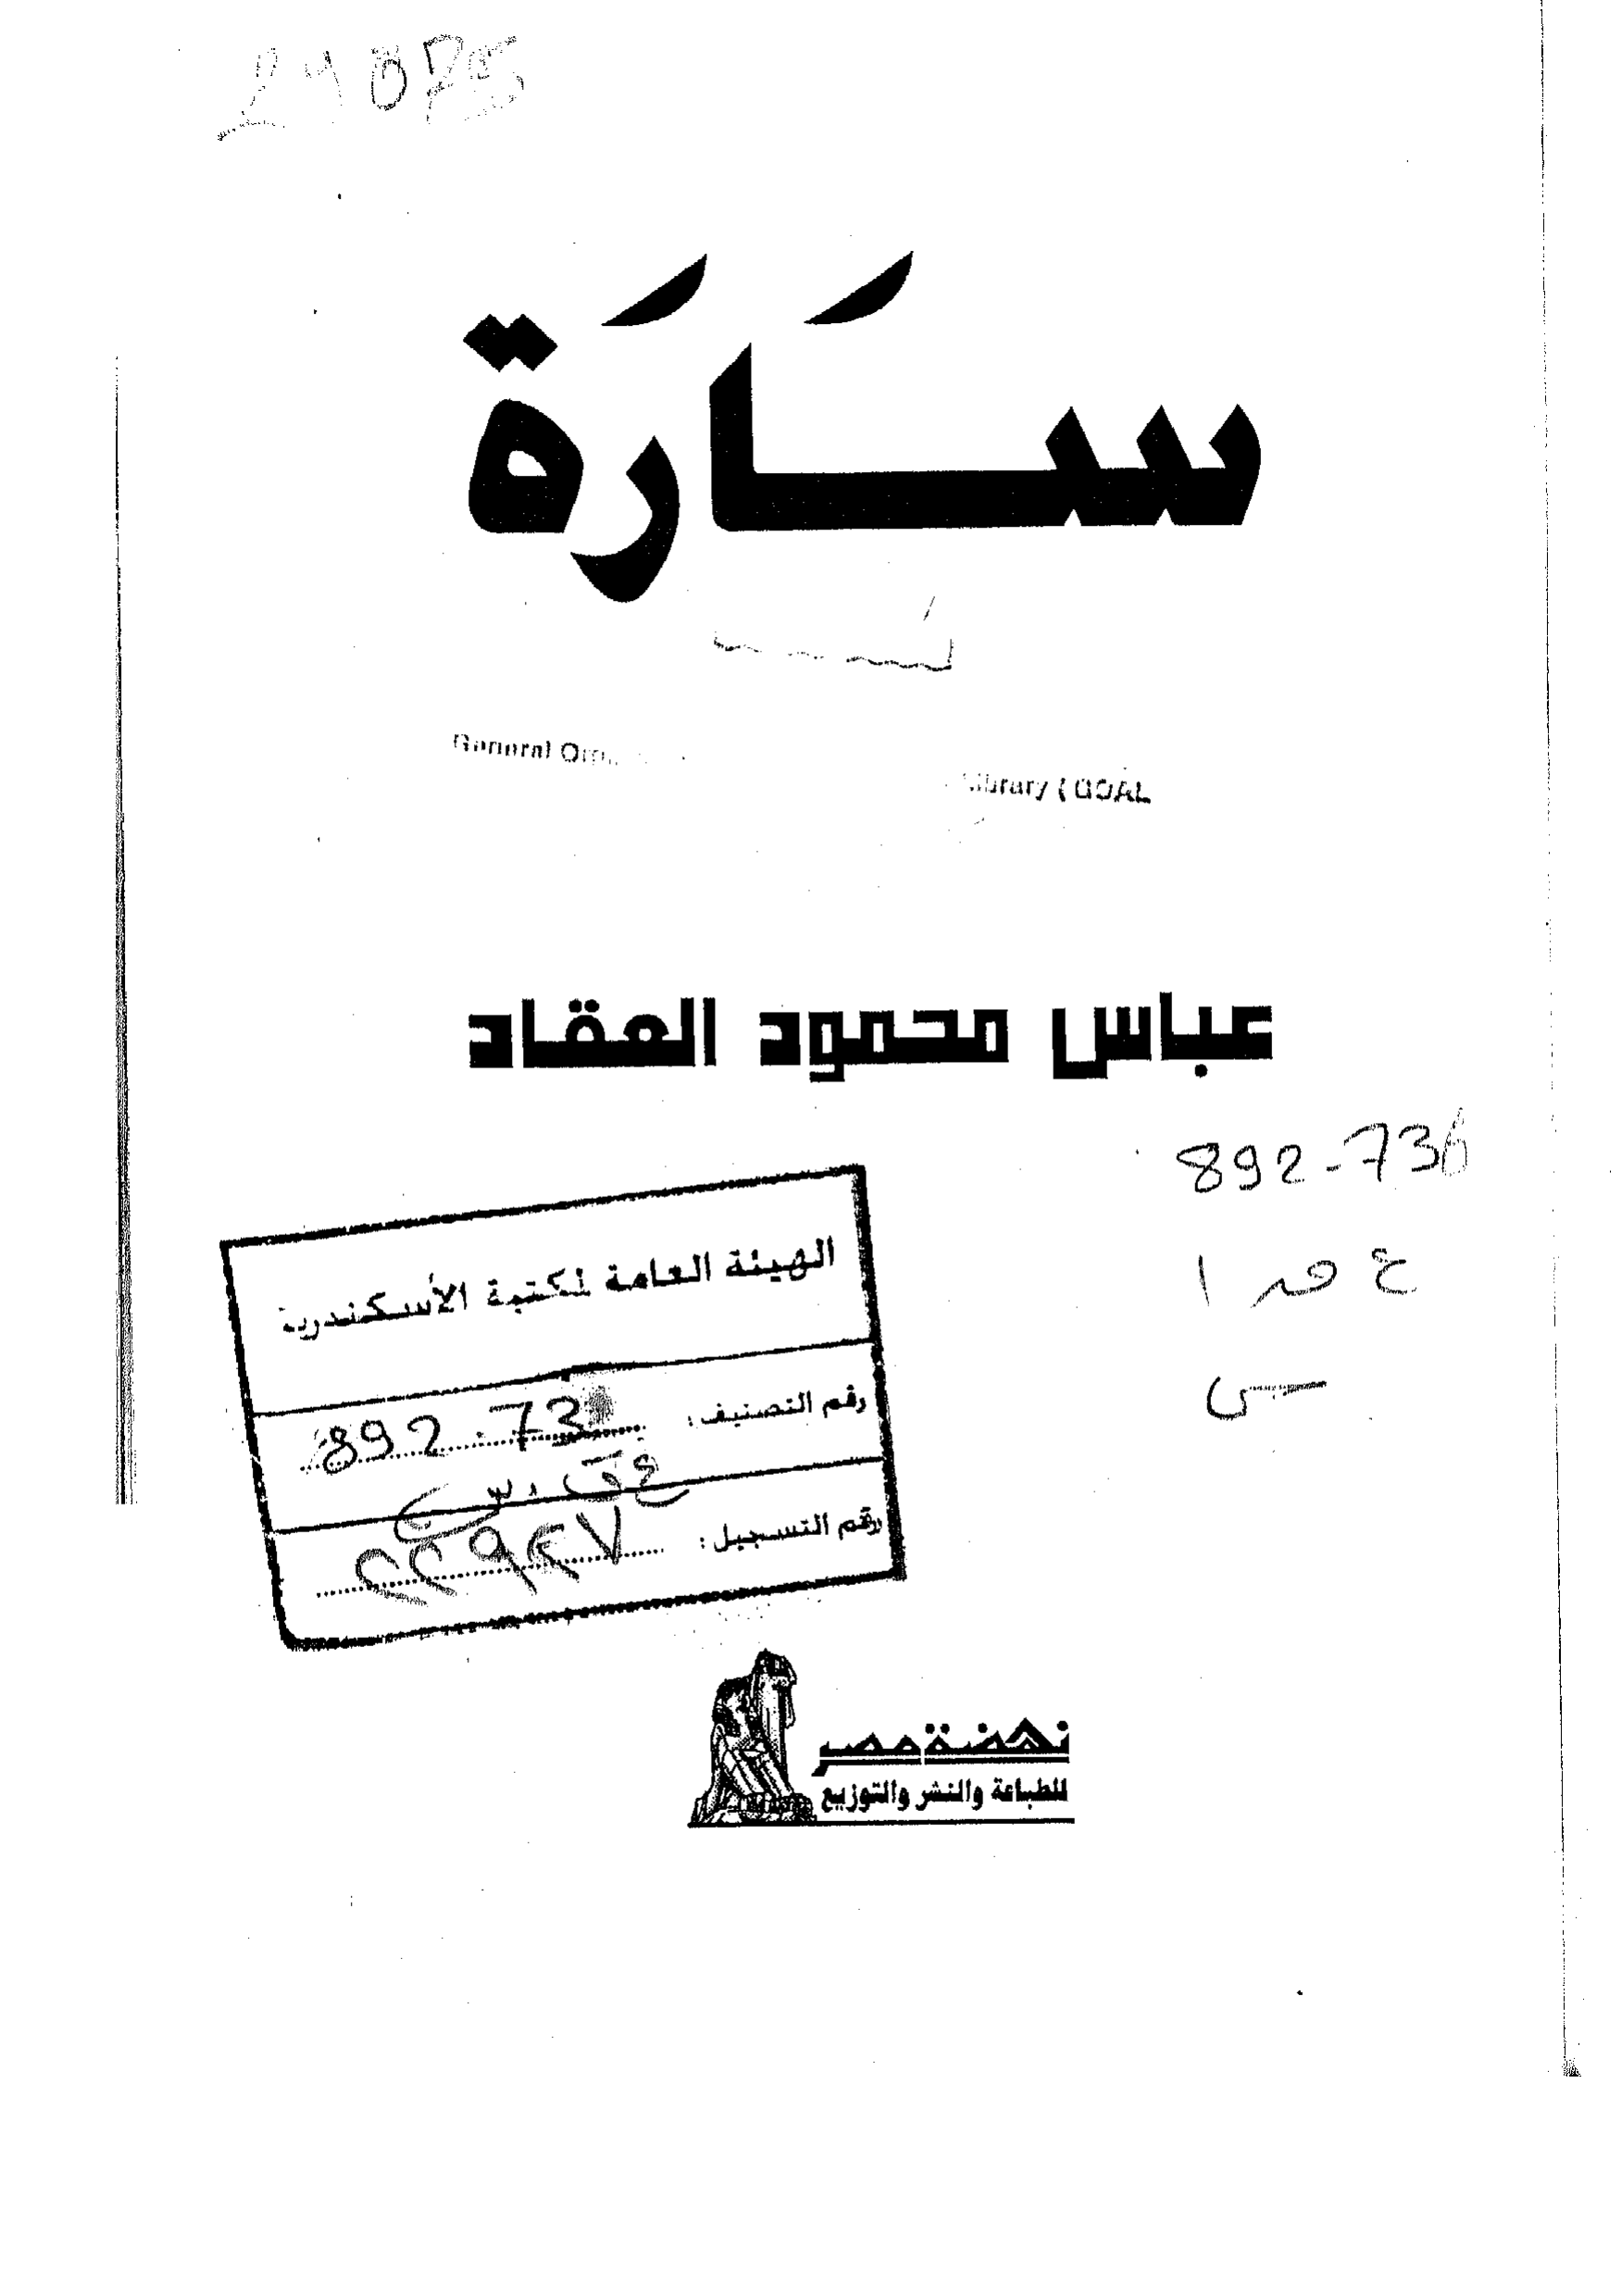 سَارَة
General
Library ( GOAL
عباس محمود العقاد
892-73
ع
س
الهيئة العامة لمكتبة الأسكندرية
رقم التصنيف: 892.73
رقم التسجيل: ٢٢٩٤٧
نهضة مصر
للطباعة والنشر والتوزيع